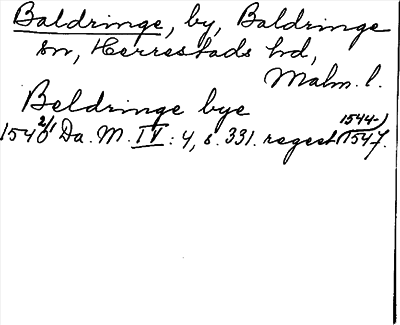 Baldringe, by, Baldringe
sn, Herrestads hd,
Malm. l.
Beldringe bye
1546 2/1 Da. M. IV: 4, s. 331. regest (1544-)
1547.